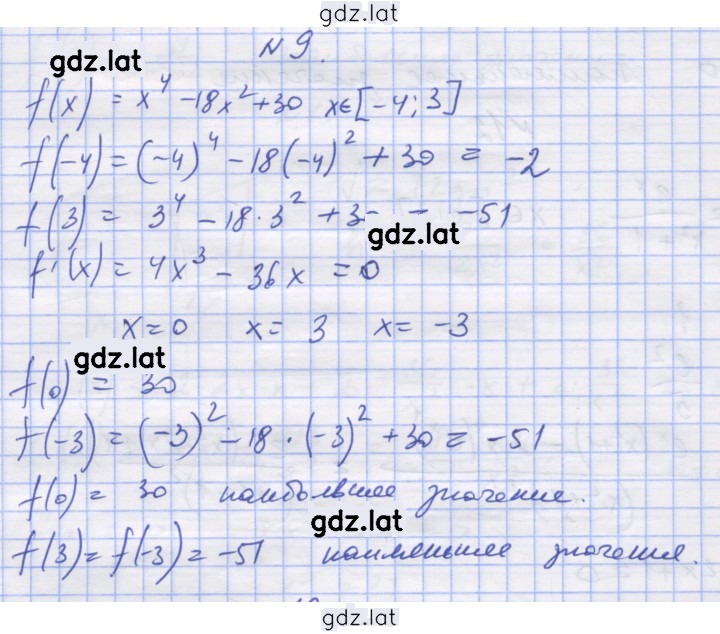 gdz.lat
№9.
gdz.lat
f(x) = x⁴ - 18x² + 30 x∈[-4; 3]
f(-4) = (-4)⁴ - 18(-4)² + 30 = -2
f(3) = 3⁴ - 18·3² + 3- - -51
gdz.lat
f'(x) = 4x³ - 36x = 0
x = 0 x = 3 x = -3
gdz.lat
f(0) = 30
f(-3) = (-3)² - 18·(-3)² + 30 = -51
f(0) = 30 наибольшее значение.
gdz.lat
f(3) = f(-3) = -51 наименьшее значения.
gdz.lat